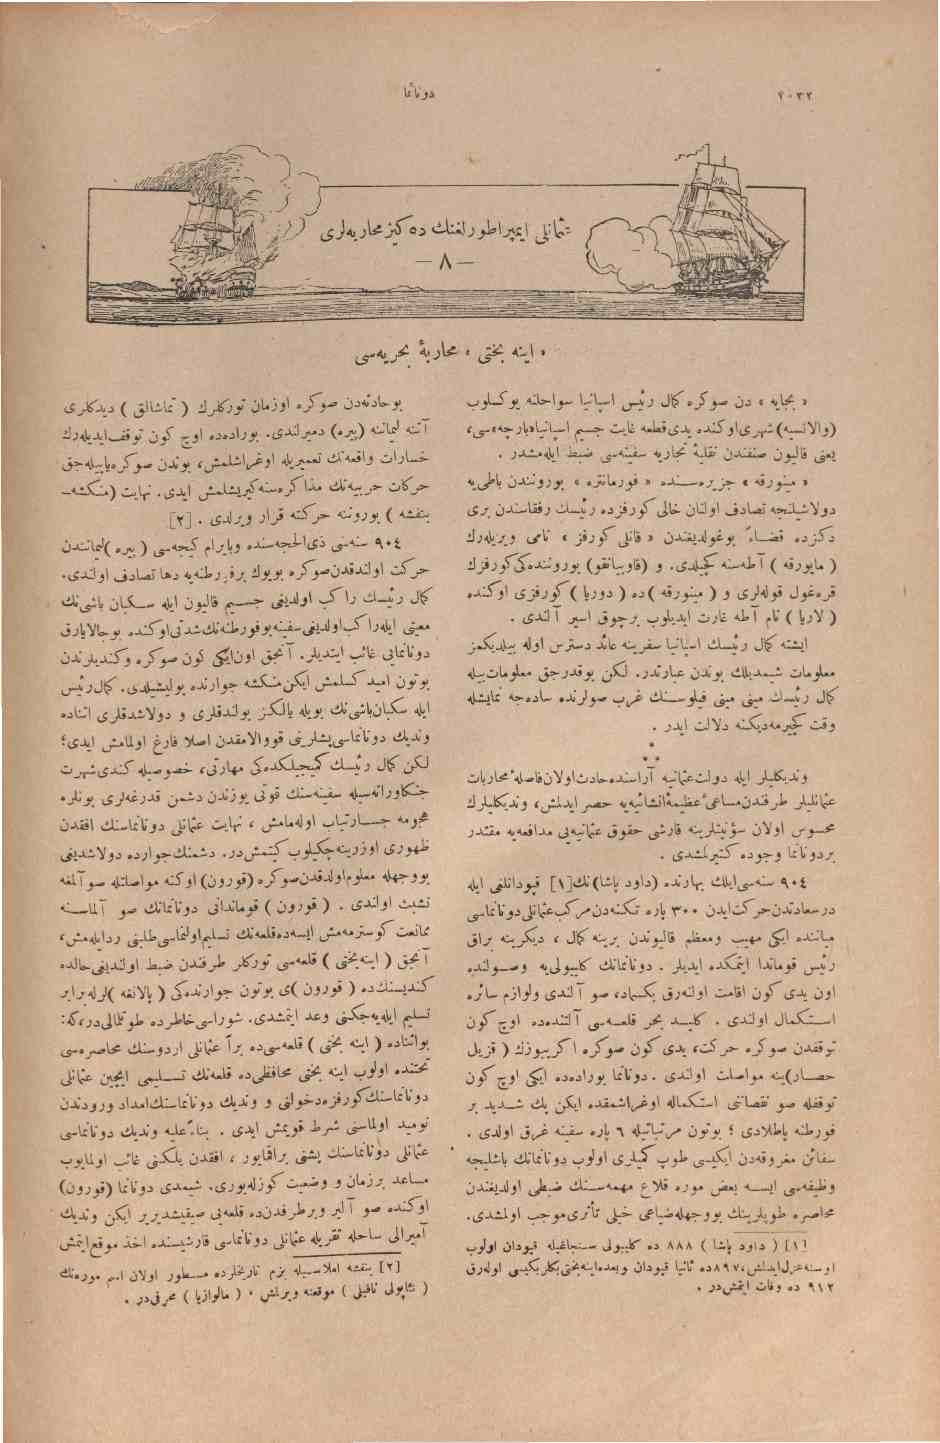 ٢٠٣٢
دونانما
عثمانلى ايمپراطورلغنك دەكيز محاربەلرى
— ٨ —
« اينه بختى » محاربۀ بحريه‌سى
« بجايه » دن صوكره كمال رئيس اسپانيا سواحلنه يوكسلوب
(والانسيه) شهرى اوكنده يدى قطعه غايت جسيم اسپانيا «بارچه» سى،
يعنى قاليون صنفندن نقليۀ تجاريه سفينه‌سى ضبط ايله‌مشدر .
« مينورقه » جزيره‌سنده « فورمانتره » بوروننده‌ن باطى‌يه
دولاشيلنجه تصادف اولنان خالى كورفزده رئيسك رفقاسندن برى
دكزده قضاءً بوغولديغندن « قانلى كورفز » نامى ويريله‌رك
( مايورقه ) آطه‌سنه كچيلدى. و (قاوبيانقو) بوروننده‌كى كورفزك
قره‌غول قوله‌لرى و ( مينورقه ) ده ( دوريا ) كورفزى اوكنده
( لاريا ) نام آطه غارت ايديلوب برچوق اسير آلندى .
ايشته كمال رئيسك اسپانيا سفرينه عائد دسترس اوله بيلديكمز
معلومات شيمديلك بوندن عبارتدر. لكن بوقدرجق معلومات بيله
كمال رئيسك مينى مينى فيلوسنك غرب صولرنده ساده‌جه نمايشله
وقت كچيرمه‌ديكنه دلالت ايدر .
* * *
ونديكليلر ايله دولت عثمانيه آراسنده حادث اولان فاصلۀ محاربات
عثمانليلر طرفندن مساعىٔ عظيمۀ انشائيه‌يه حصر ايدلمش، ونديكليلرك
محسوس اولان سؤنيتلرينه قارشى حقوق عثمانيه‌يى مدافعه‌يه مقتدر
بردونانما وجوده كتيرلمشدى .
٩٠٤ سنه‌سى ايلك بهارنده (داود پاشا) نك[١] قپودانلغى ايله
درسعادتدن حركت ايدن ٣٠٠ پاره تكنه‌دن مركب عثمانلى دونانماسى
مياننده ايكى مهيب ومعظم قاليوندن برينه كمال ، ديكرينه براق
رئيس قوماندا ايتمكده ايديلر . دونانمانك كليبولى‌يه وصولنده
اون يدى كون اقامت اولنه‌رق بكسماد، صو آلندى ولوازم سائره
استكمال اولندى . كليد بحر قلعه‌سى آلتنده‌ده اوچ كون
توقفدن صوكره حركت، يدى كون صوكره اكريبوزك ( قزيل
حصار) ينه مواصلت اولندى . دونانما بوراده‌ده ايكى اوچ كون
توقفله صو نقصانى استكماله اوغراشمقده ايكن پك شديد بر
فورطنه پاطلادى ؛ بوتون مرتباتيله ٦ پاره سفينه غرق اولدى .
سفائن مغروقه‌دن ايكيسى طوپ كميلرى اولوب دونانمانك باشليجه
وظيفه‌سى ايسه بعض موره قلاع مهمه‌سنك ضبطى اولديغندن
محاصره طوپلرينك بووجهله ضياعى خيلى تأثرى موجب اولمشدى.
[١] ( داود پاشا ) ٨٨٨ ده كليبولى سنجاغيله قپودان اولوب
اوسنه عزل ايدلمش، ٨٩٧ ده ثانيا قپودان وبعده اينه بختى بكلربكيسى اوله‌رق
٩١٢ ده وفات ايتمش‌در .
بوحادثه‌دن صوكره اوزمان توركلرك ( تماشالق ) ديدكلرى
آتنه ليماننه (پيره) دميرلندى. بوراده‌ده اوچ كون توقف ايديله‌رك
خسارات واقعه‌نك تعميريله اوغراشلمش، بوندن صوكره ياپيله‌جق
حركات حربيه‌نك مذاكره‌سنه كيريشلمش ايدى. نهايت (منكشه-
بنفشه ) بوروننه حركته قرار ويرلدى . [٢]
٩٠٤ سنه‌سى ذى‌الحجه‌سنده وبايرام كيجه‌سى ( پيره ) ليمانندن
حركت اولندقدن صوكره بويوك برفورطنه‌يه دها تصادف اولندى.
كمال رئيسك راكب اولديغى جسيم قاليون ايله سكبان باشى‌نك
معيتى ايله راكب اولديغى سفينه بوفورطنه‌نك شدتى اوكنده بوجالايارق
دونانمايى غائب ايتديلر. آنجق اون ايكى كون صوكره وكنديلرندن
بوتون اميد كسلمش ايكن منكشه جوارنده بوليشيلدى. كمال رئيس
ايله سكبان باشى‌نك بويله يالكز بولندقلرى و دولاشدقلرى اثناده
ونديك دونانماسى پشلرينى قووالامقدن اصلا فارغ اولمامش ايدى؛
لكن كمال رئيسك كميجيلكده‌كى مهارتى، خصوصيله كندى شهرت
جنكاورانه‌سيله سفينه‌سنك قوتى يوزندن دشمن قدرغه‌لرى بونلره
هجومه جسارتياب اوله‌مامش ، نهايت عثمانلى دونانماسنك افقدن
ظهورى اوزرينه چكيلوب كيتمش‌در. دشمنك جوارده دولاشديغى
بووجهله معلوم اولدقدن صوكره (قورون) اوكنه مواصلتله صو آلمغه
تشبث اولندى . ( قورون ) قوماندانى دونانمانك صو آلماسنه
ممانعت كوسترمه‌مش ايسه‌ده قلعه‌نك تسليم اولنماسى طلبنى رد ايله‌مش،
آنجق ( اينه بختى ) قلعه‌سى توركلر طرفندن ضبط اولنديغى حالده
كنديسنك‌ده ( قورون ) ى بوتون جوارنده‌كى ( پالانقه ) لرله برابر
تسليم ايليه‌جكنى وعد ايتمشدى. شوراسى خاطرده طوتلمالى‌در، كه:
بواثناده ( اينه بختى ) قلعه‌سى‌ده براً عثمانلى اردوسنك محاصره‌سى
تحتنده اولوب اينه بختى محافظى‌ده قلعه‌نك تسليمى ايچين عثمانلى
دونانماسنك كورفزه دخولنى و ونديك دونانماسنك امداد ورودندن
نوميد اولماسنى شرط قويمش ايدى . بناءً عليه ونديك دونانماسى
عثمانلى دونانماسنك پشنى براقمايور ، افقدن يلكنى غائب اولمايوب
مساعد برزمان و وضعيت كوزله‌يورى. شيمدى دونانما (قورون)
اوكنده صو آلير وبرطرفدن‌ده قلعه‌يى صيقيشديرير ايكن ونديك
آميرالى ساحله تقريله عثمانلى دونانماسى قارشيسنده اخذ موقع ايتمش
[٢] بنفشه املاسيله بزم تاريخلرده مسطور اولان اسم موره‌نك
( ناپولى ) موقعنه ويرلمش . ( مالوازيا ) محرفى‌در .